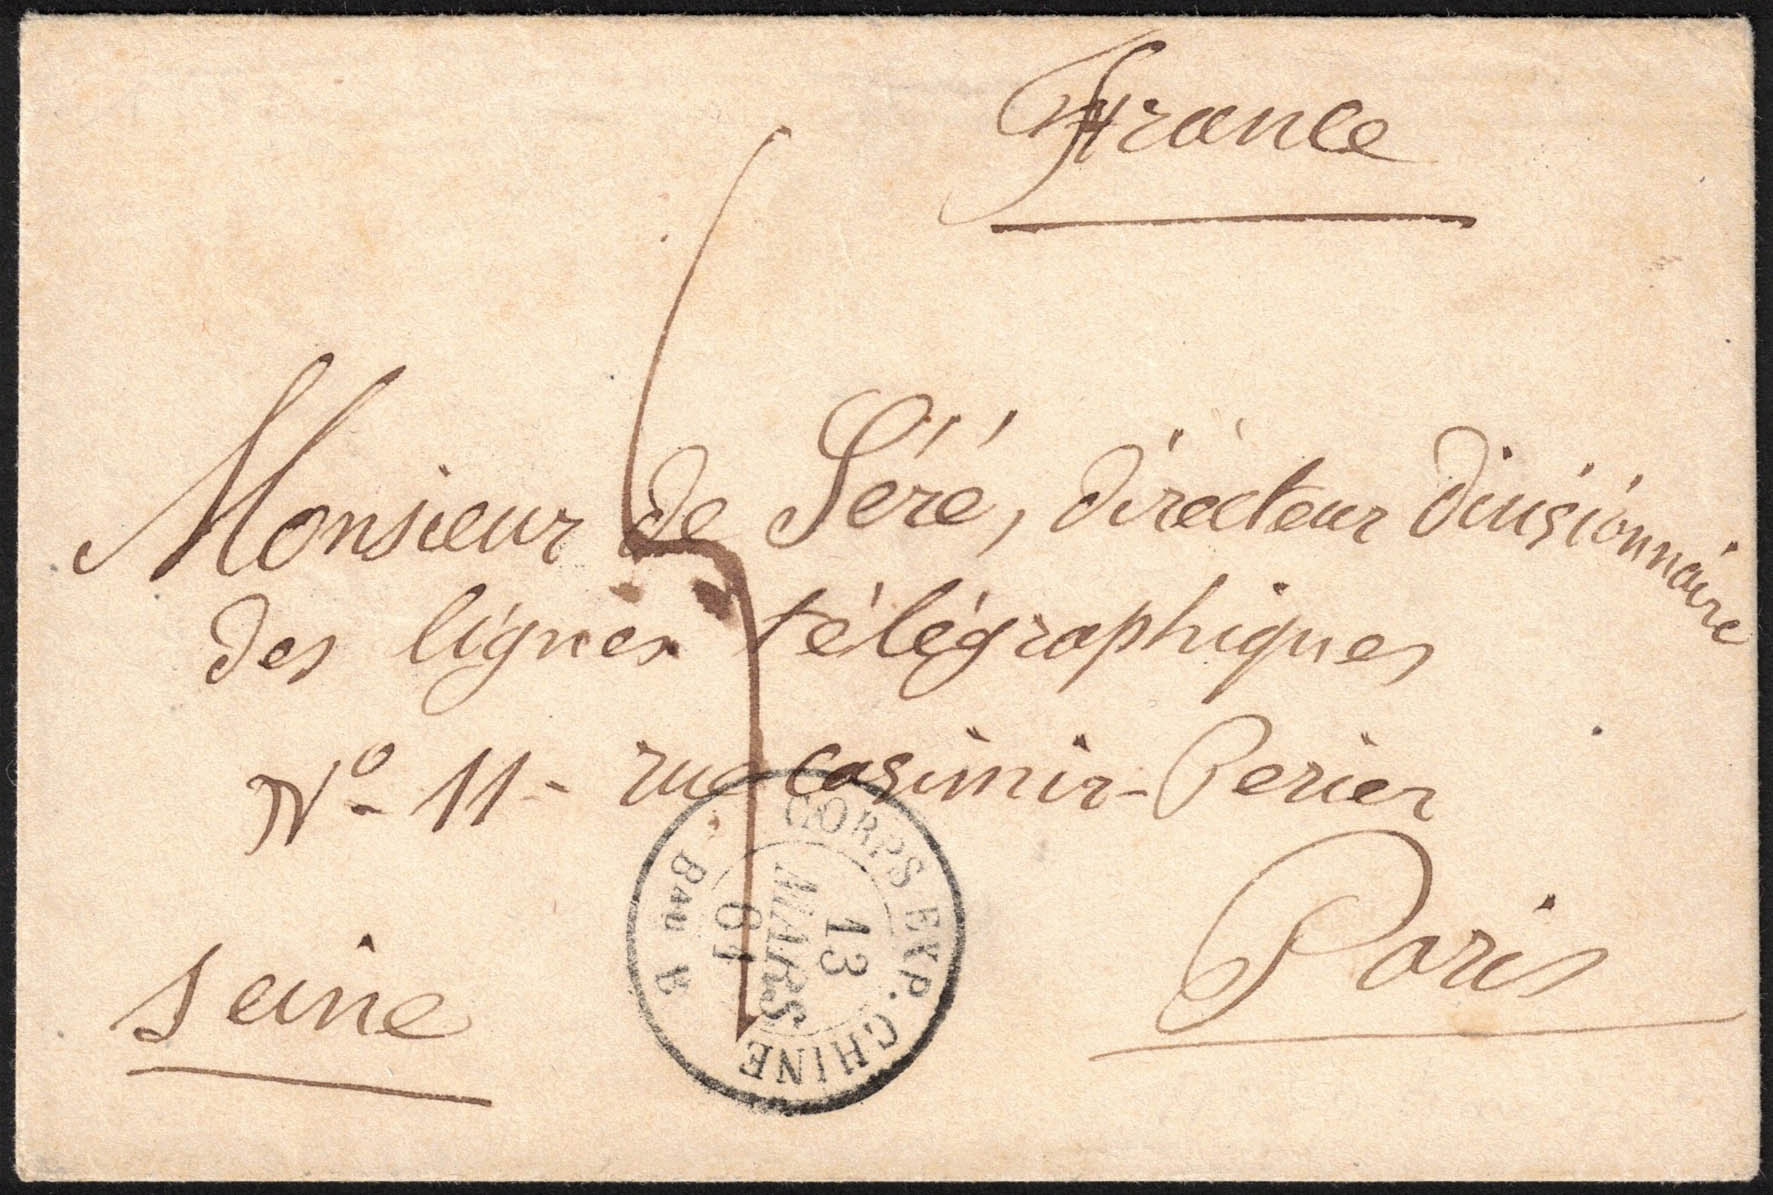 France
Monsieur de Séré, directeur divisionnaire
des lignes télégraphiques
N° 11 - rue casimir-Perier
Paris
Seine
CORPS EXP. CHINE
13
MARS
61
Bau